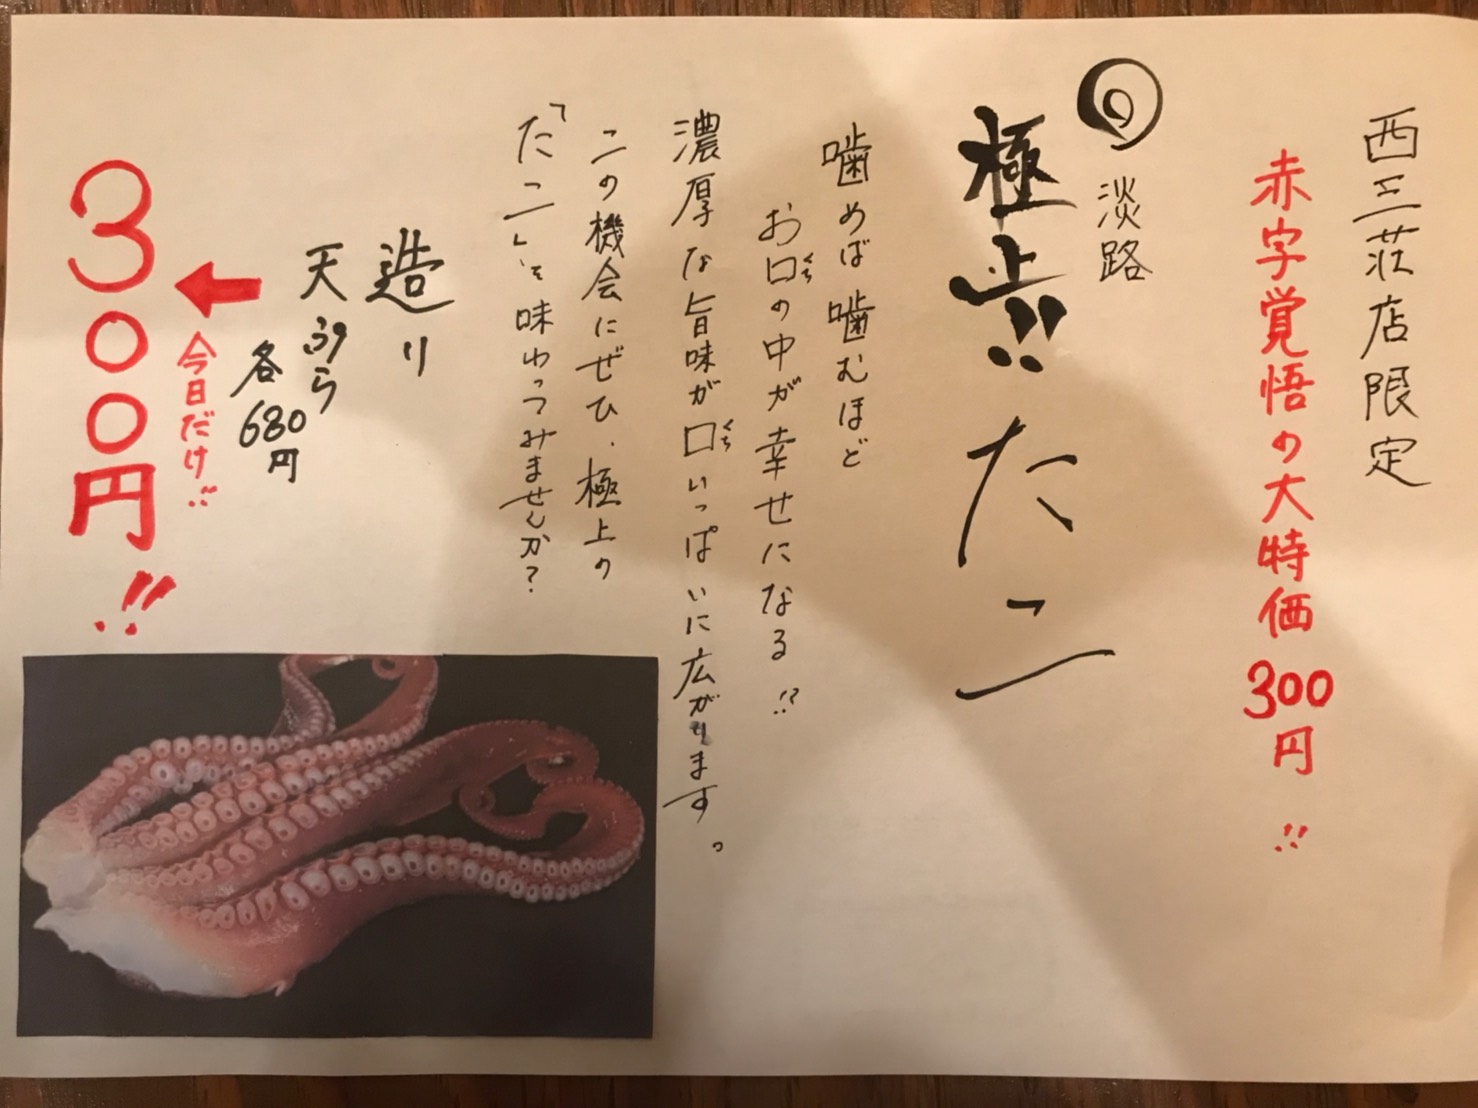 西三荘店限定
赤字覚悟の大特価300円!!
淡路
極上!!たこ
噛めば噛むほど
お口の中が幸せになる!?
くち
濃厚な旨味が口いっぱいに広がります。
くち
この機会にぜひ、極上の
「たこ」を味わってみませんか?
造り
天ぷら
各680円
今日だけ!!
300円!!